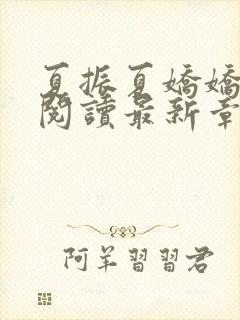 夏振夏嬌嬌
閱讀最新章
阿羊習習君